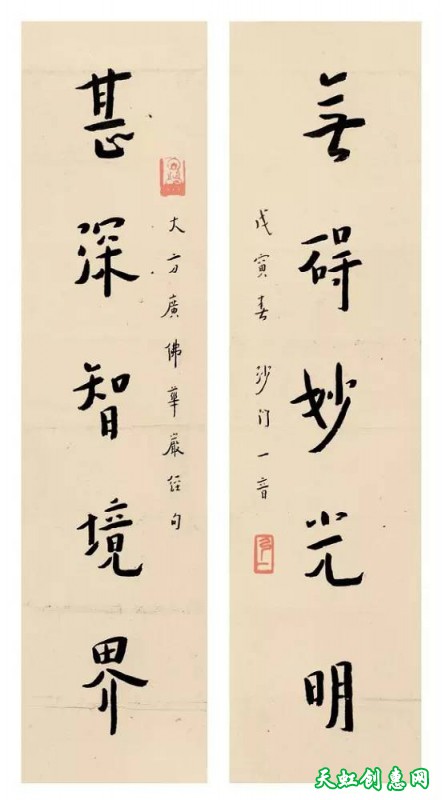 無碍妙光明
戊寅春 沙门一音
大方廣佛華嚴經句
甚深智境界
天虹创惠网